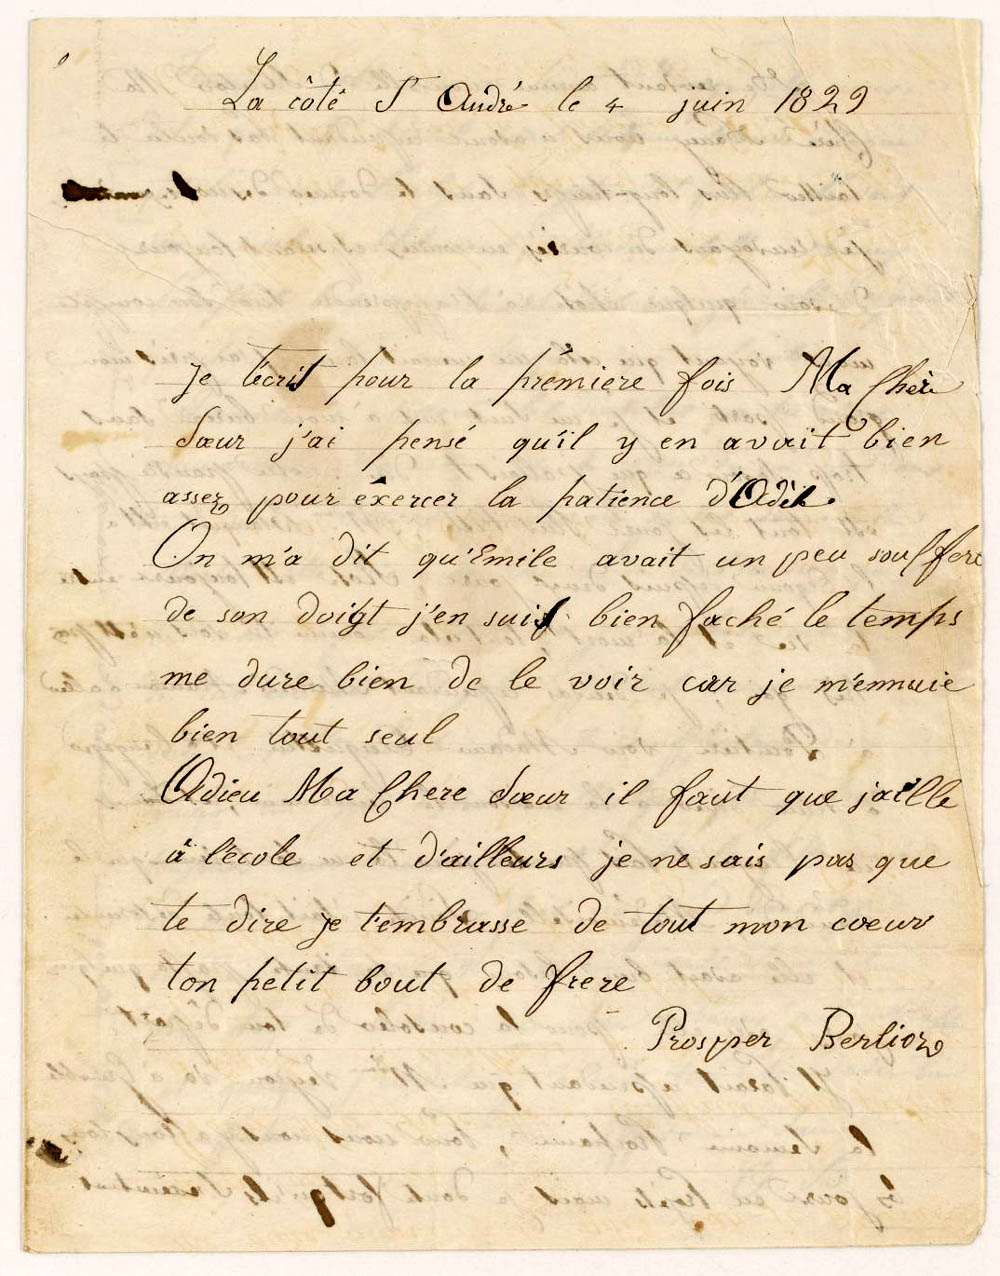 La côte St André le 4 juin 1829
Je t'ecris pour la première fois Ma Chère
Sœur j'ai pensé qu'il y en avait bien
assez pour éxercer la patience d'Adèle.
On m'a dit qu'Emile avait un peu souffert
de son doigt j'en suis bien faché le temps
me dure bien de le voir car je m'ennuie
bien tout seul
Adieu Ma Chere Sœur il faut que j'aille
à l'école et d'ailleurs je ne sais pas que
te dire je t'embrasse de tout mon coeur
ton petit bout de frere
Prosper Berlioz